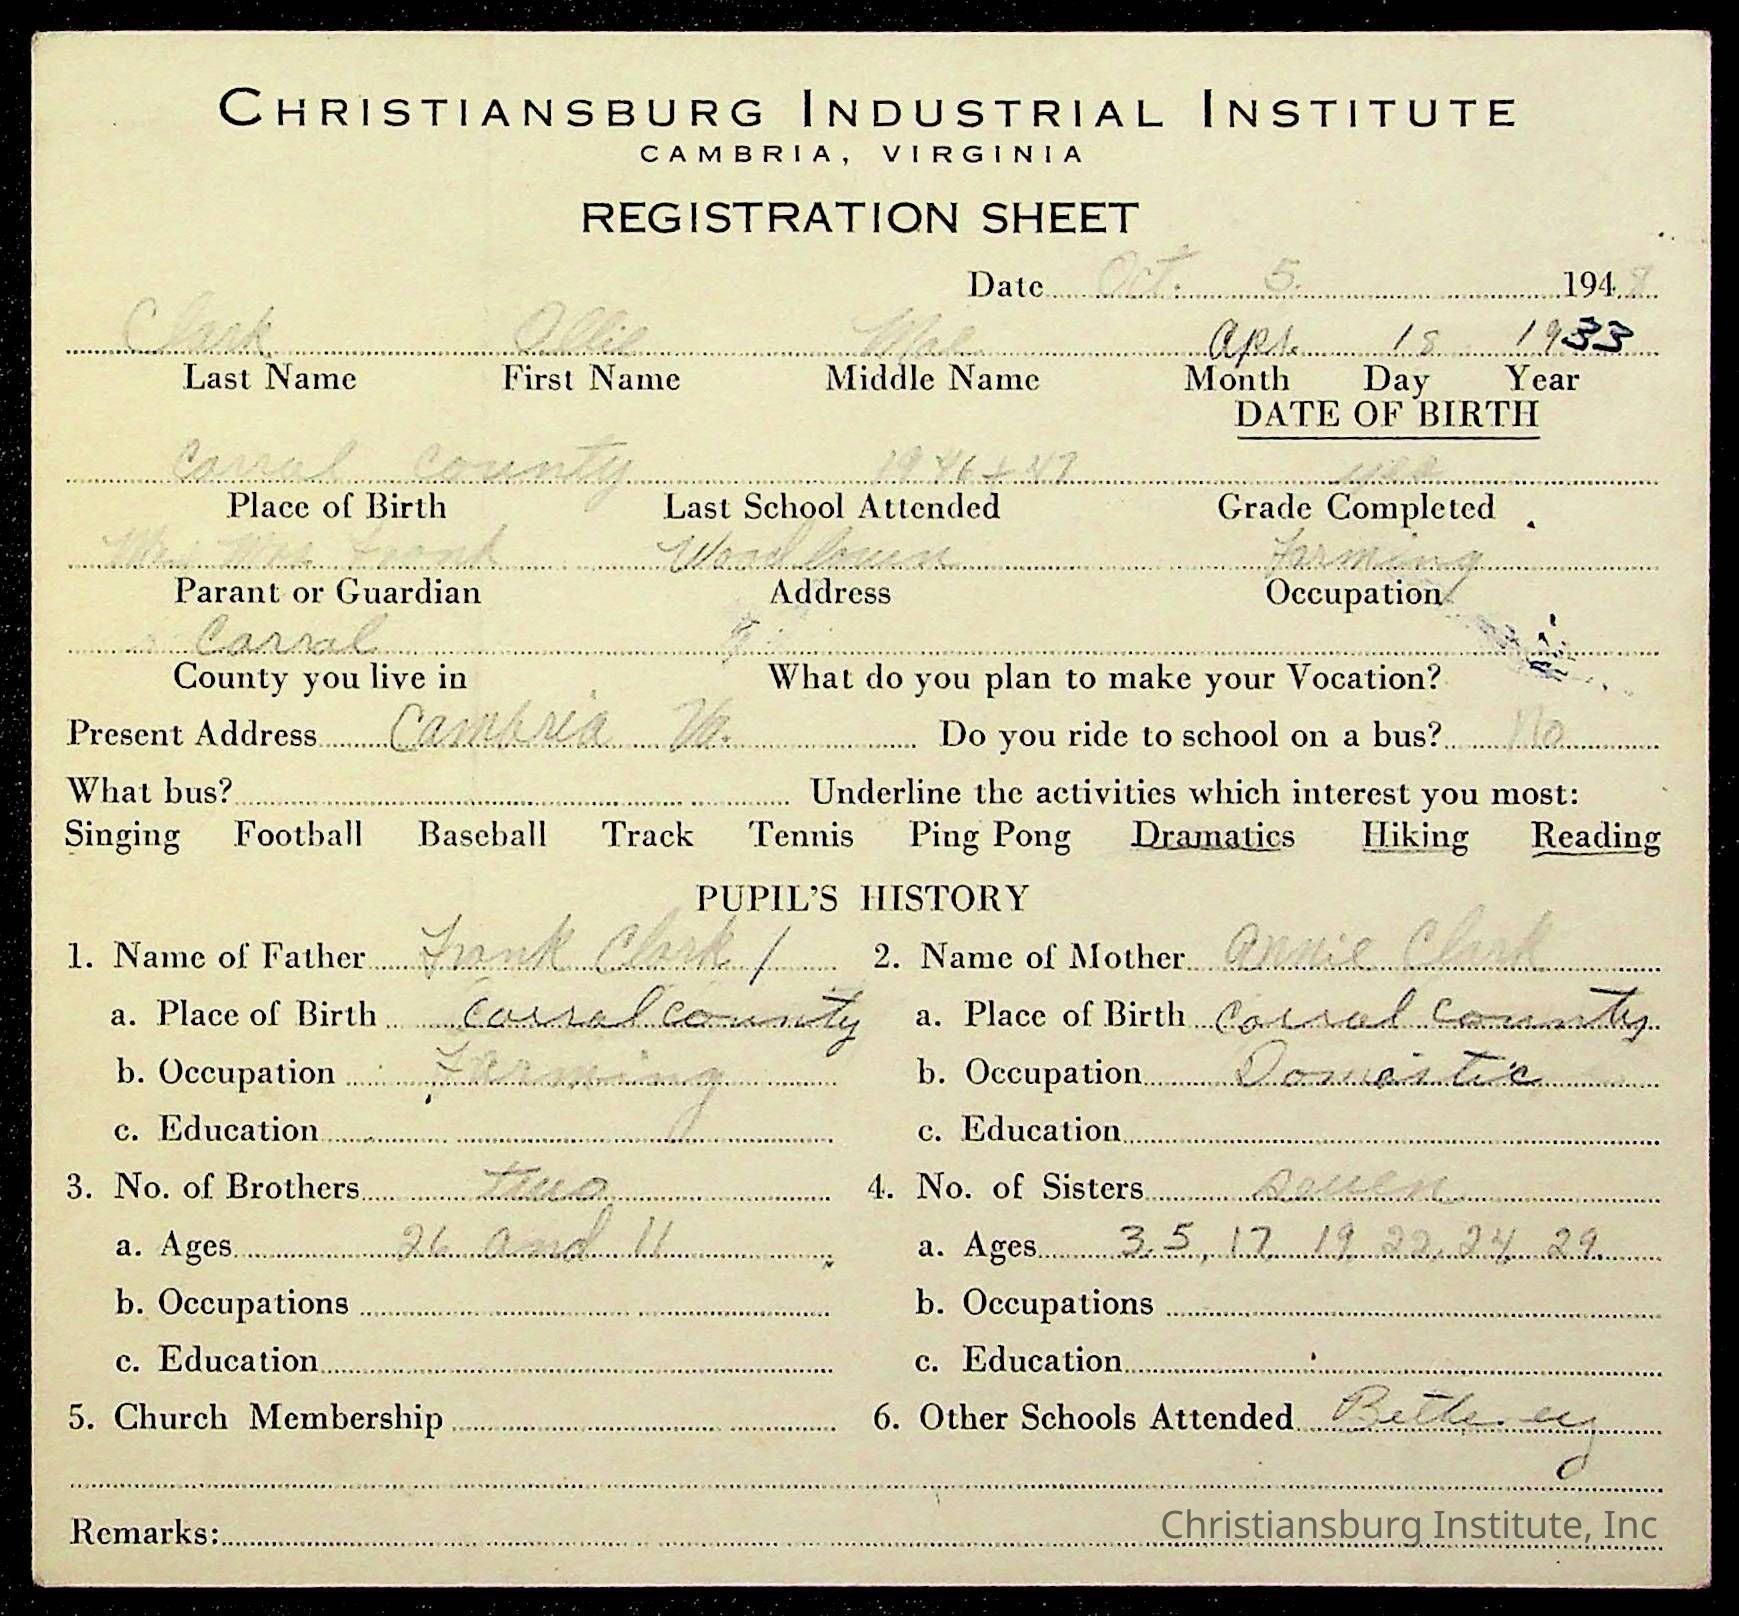 CHRISTIANSBURG INDUSTRIAL INSTITUTE
CAMBRIA, VIRGINIA
REGISTRATION SHEET
Date Oct. 5. 1948
Clark Ollie Mae Apr. 18 1933
Last Name First Name Middle Name Month Day Year
DATE OF BIRTH
Carral county 1946 + 47 yes
Place of Birth Last School Attended Grade Completed
Frank Woodlawn Farming
Parant or Guardian Address Occupation
Carral
County you live in What do you plan to make your Vocation?
Present Address Cambria Va. Do you ride to school on a bus? No
What bus? Underline the activities which interest you most:
Singing Football Baseball Track Tennis Ping Pong Dramatics Hiking Reading
PUPIL'S HISTORY
1. Name of Father Frank Clark / 2. Name of Mother Annie Clark
a. Place of Birth Carral county a. Place of Birth Carral County
b. Occupation Farming b. Occupation Domestic
c. Education c. Education
3. No. of Brothers two 4. No. of Sisters seven
a. Ages 26 and 11 a. Ages 3, 5, 17 19 22, 24 29
b. Occupations b. Occupations
c. Education c. Education
5. Church Membership 6. Other Schools Attended
Remarks:
Christiansburg Institute, Inc